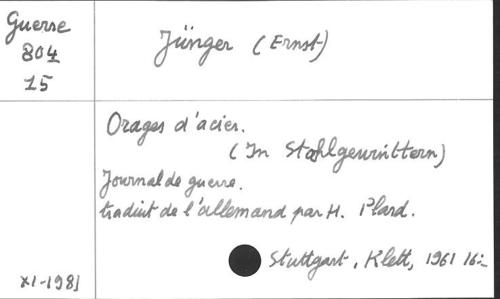 Guerre
804
15
Jünger (Ernst)
Orages d'acier.
(In Stahlgewittern)
Journal de guerre.
traduit de l'allemand par H. Plard.
Stuttgart, Klett, 1961 16º
XI-1981